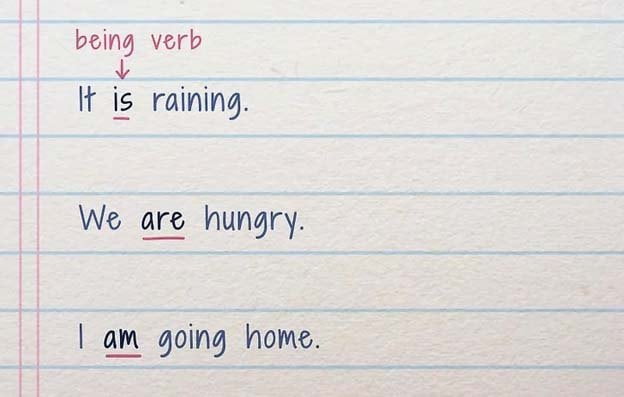 being verb
It is raining.
We are hungry.
I am going home.